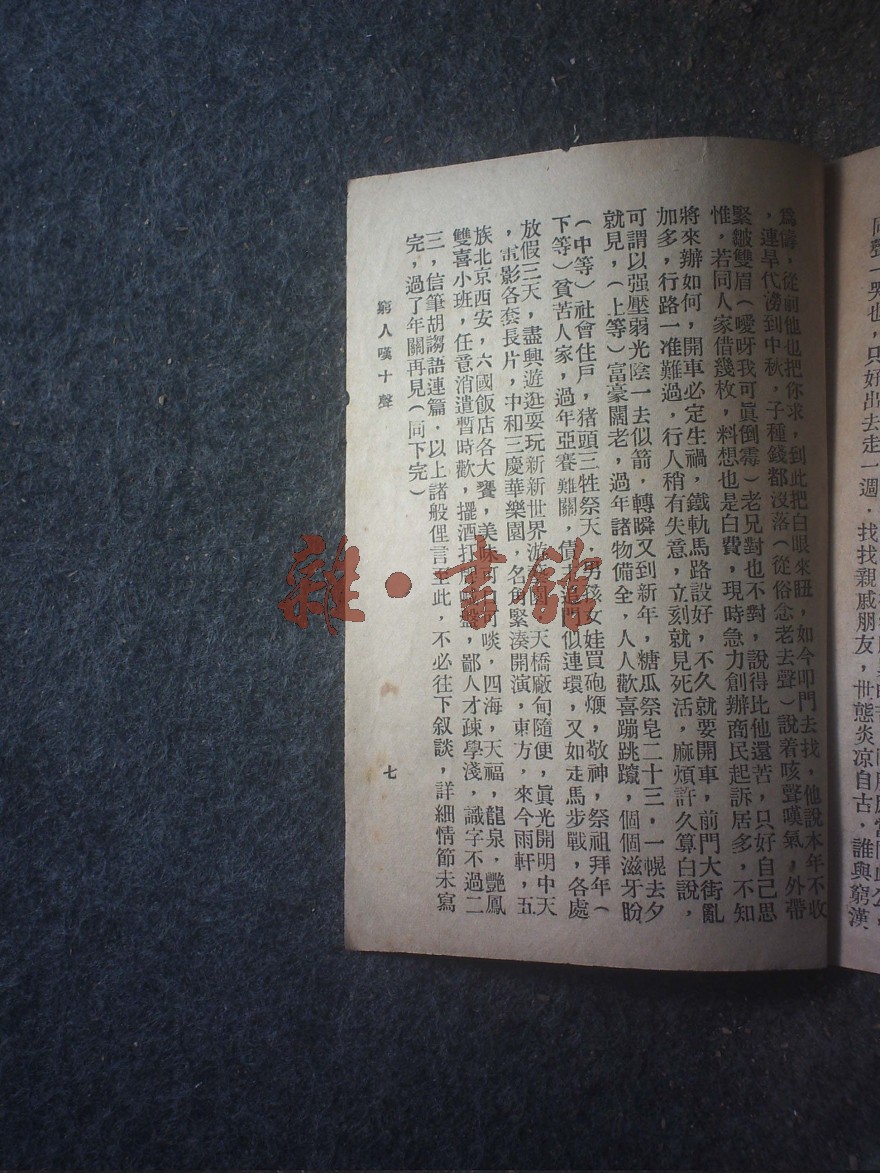 同聲一哭也，只好出去走一週，找找親戚朋友，世態炎凉自古，誰與窮漢
爲儔，從前他也把你求，到此把白眼來瞅，如今叩門去找，他說本年不收
，連旱代澇到中秋，子種錢都沒落（從俗念老去聲）說着咳聲嘆氣，外帶
緊皺雙眉（噯呀我可眞倒霉）老兄對也不對，說得比他還苦，只好自己思
惟，若同人家借幾枚，料想也是白費，現時急力創辦商民起訴居多，不知
將來辦如何，開車必定生禍，鐵軌馬路設好，不久就要開車，前門大街亂
加多，行路一准難過，行人稍有失意，立刻就見死活，麻煩許久算白說，
可謂以强壓弱光陰一去似箭，轉瞬又到新年，糖瓜祭皂二十三，一幌去夕
就見，（上等）富豪闊老，過年諸物備全，人人歡喜蹦跳躥，個個滋牙盼
（中等）社會住戶，猪頭三牲祭天，男孩女娃買砲煉，敬神，祭祖拜年（
下等）貧苦人家，過年亞賽難關，債主追門似連環，又如走馬步戰，各處
放假三天，盡興遊逛耍玩新新世界游園，天橋廠甸隨便，眞光開明中天
，電影各套長片，中和三慶華樂園，名角緊湊開演，東方，來今雨軒，五
族北京西安，六國飯店各大饔，美味可口可啖，四海，天福，龍泉，艷鳳
雙喜小班，任意消遣暫時歡，擺酒打盤，鄙人才疎學淺，識字不過二
三，信筆胡謅語連篇，以上諸般俚言至此，不必往下叙談，詳細情節未寫
完，過了年關再見（同下完）
窮人嘆十聲
七
雜·書舘